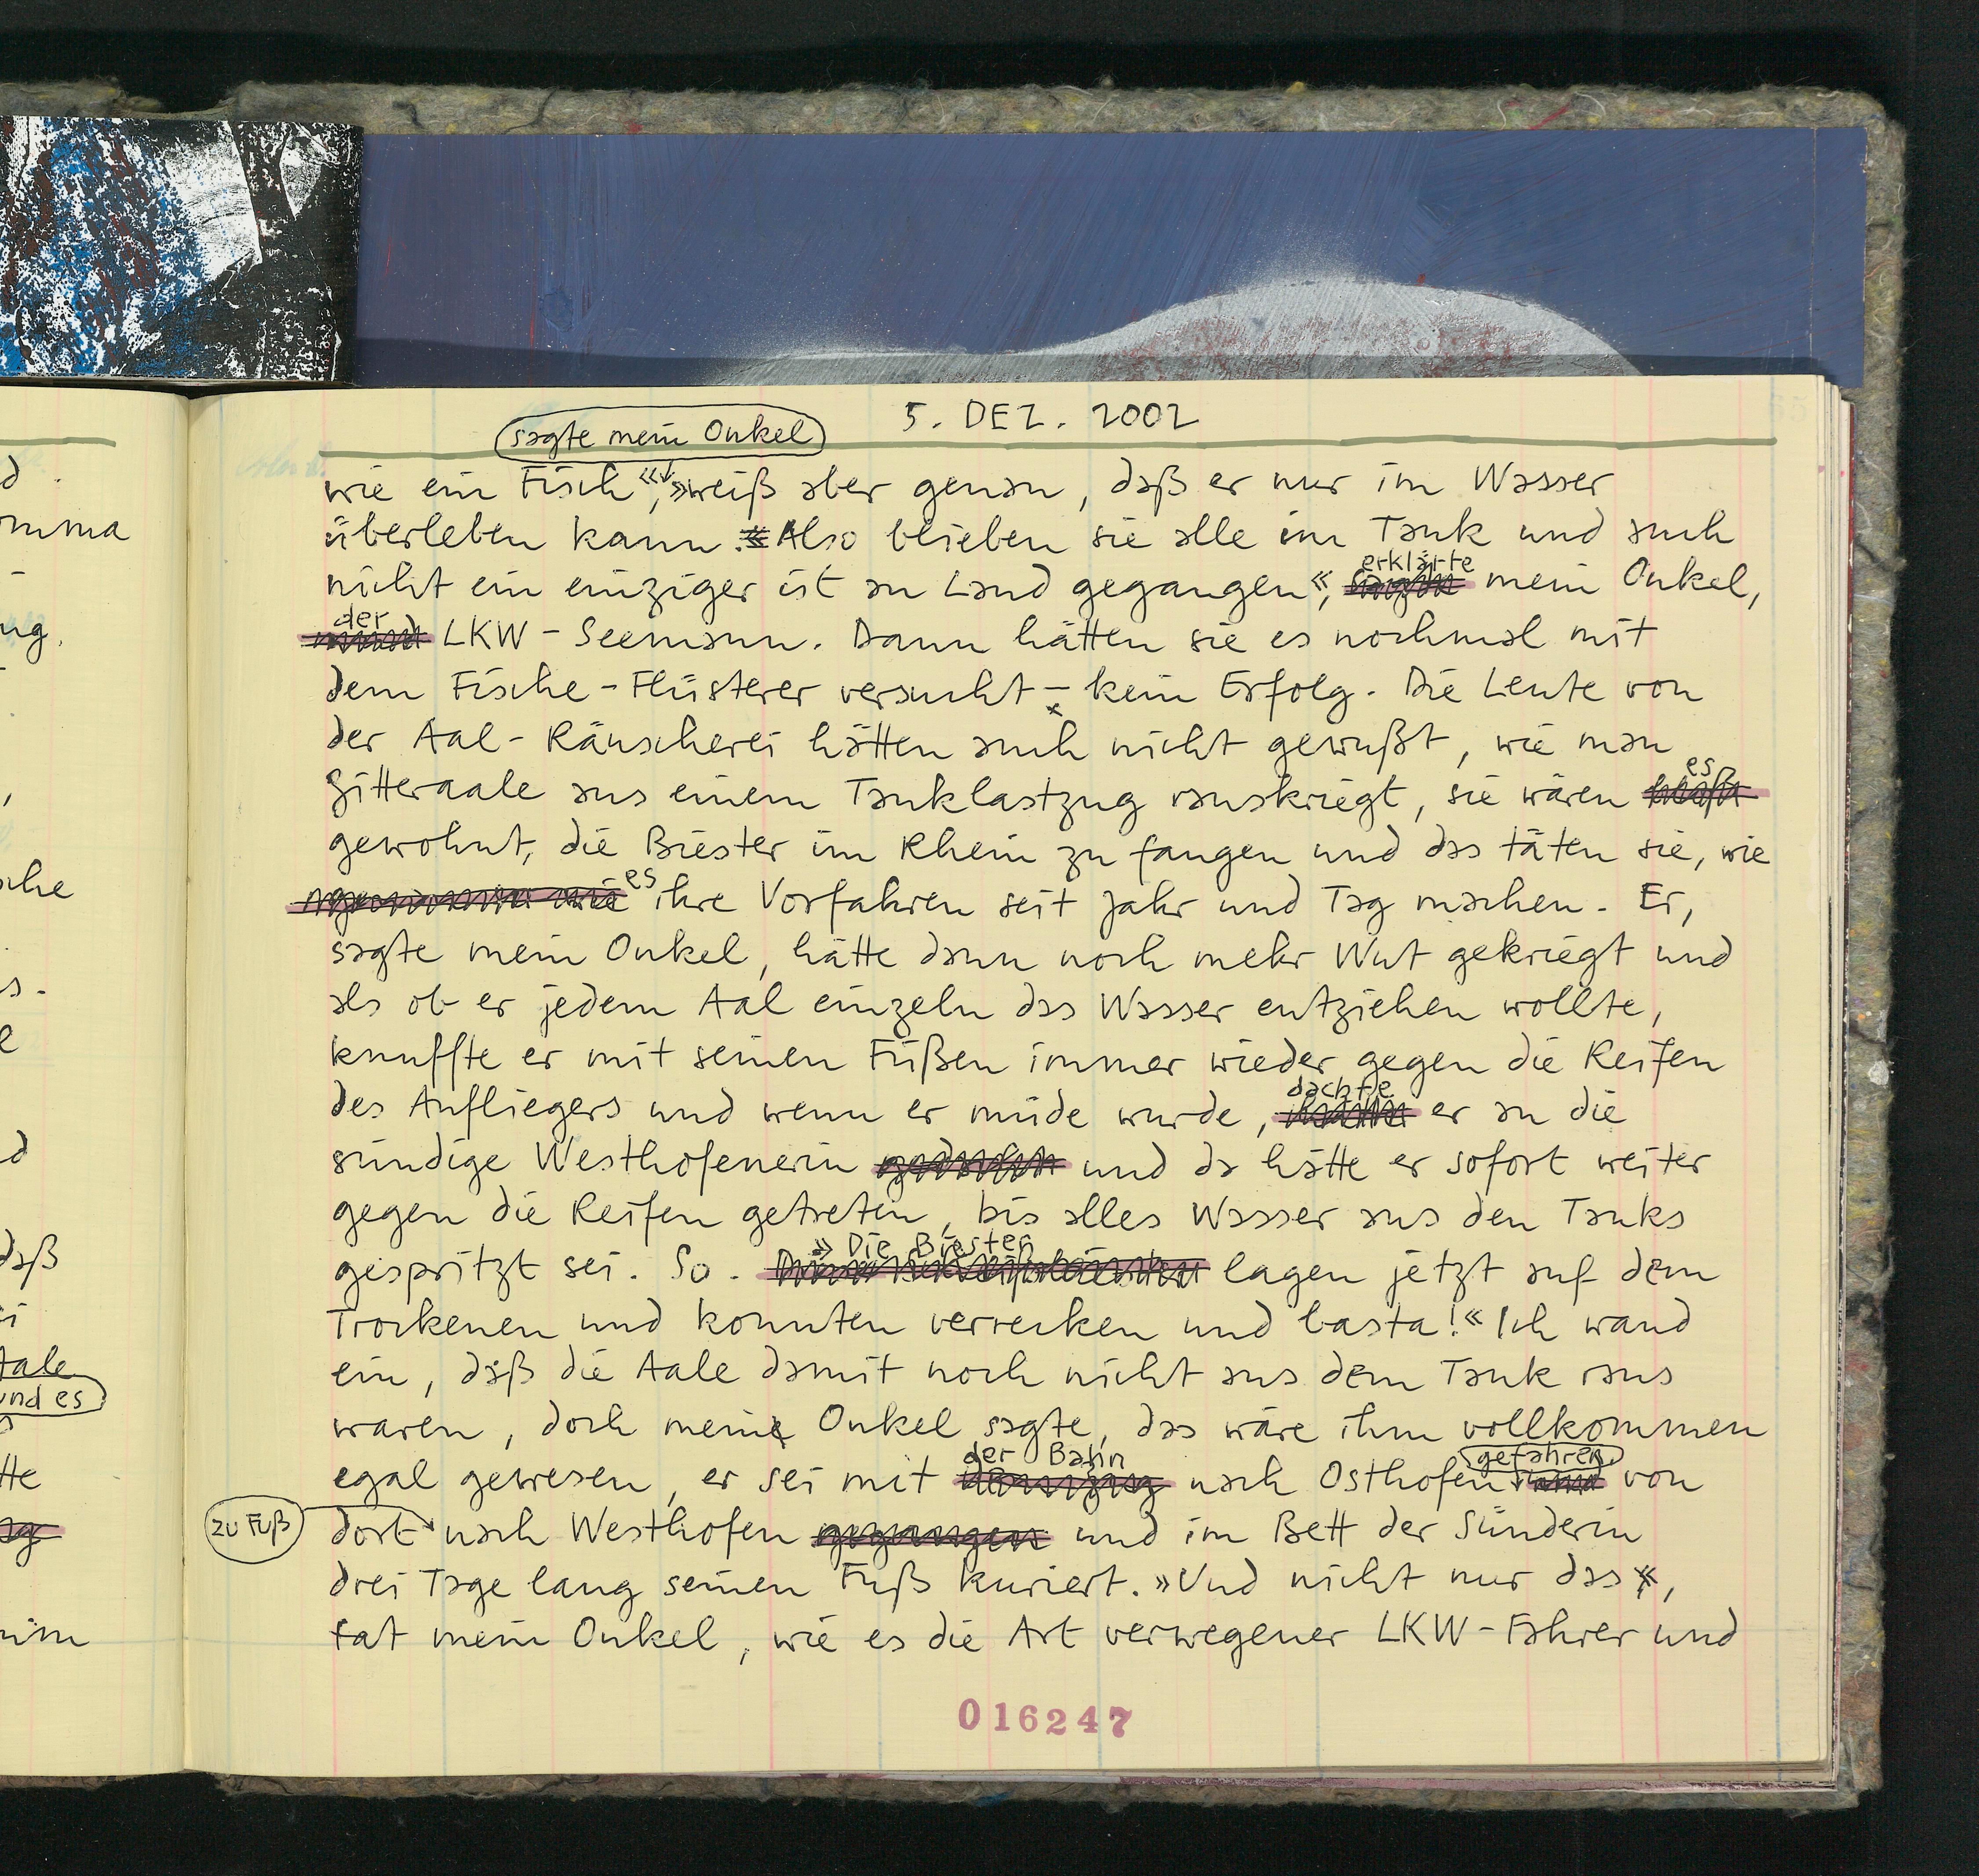 5. DEZ. 2002
sagte mein Onkel
wie ein Fisch«, »weiß aber genau, daß er nur im Wasser
überleben kann. Also blieben sie alle im Tank und auch
nicht ein einziger ist an Land gegangen«, erklärte mein Onkel,
der LKW-Seemann. Dann hätten sie es nochmal mit
dem Fische-Flüsterer versucht – kein Erfolg. Die Leute von
der Aal-Räucherei hätten auch nicht gewußt, wie man
Zitteraale aus einem Tanklastzug rauskriegt, sie wären es
gewohnt, die Biester im Rhein zu fangen und das täten sie, wie
es ihre Vorfahren seit Jahr und Tag machen. Er,
sagte mein Onkel, hätte dann noch mehr Wut gekriegt und
als ob er jedem Aal einzeln das Wasser entziehen wollte,
knuffte er mit seinen Füßen immer wieder gegen die Reifen
des Aufliegers und wenn er müde wurde, dachte er an die
sündige Westhofenerin und da hätte er sofort weiter
gegen die Reifen getreten, bis alles Wasser aus den Tanks
gespritzt sei. So. »Die Biester lagen jetzt auf dem
Trockenen und konnten verrecken und basta!« Ich wand
ein, daß die Aale damit noch nicht aus dem Tank raus
waren, doch mein Onkel sagte, das wäre ihm vollkommen
egal gewesen, er sei mit der Bahn nach Osthofen gefahren von
zu Fuß
dort nach Westhofen und im Bett der Sünderin
drei Tage lang seinen Fuß kuriert. »Und nicht nur das«,
tat mein Onkel, wie es die Art verwegener LKW-Fahrer und
016247
omma
ug.
che
s.
daß
Aale
und es
tte